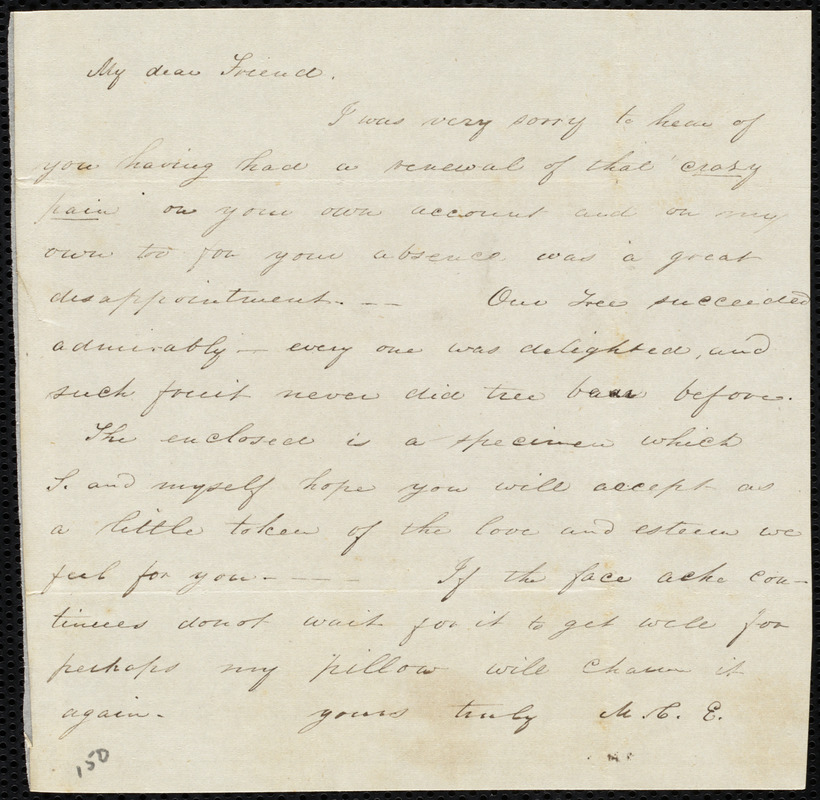 My dear Friend.
I was very sorry to hear of
you having had a renewal of that "crazy
pain" on your own account and on my
own too for your absence was a great
disappointment. - - Our Tree succeeded
admirably - every one was delighted, and
such fruit never did tree bear before.
The enclosed is a specimen which
S. and myself hope you will accept as
a little token of the love and esteem we
feel for you - - - - If the face ache con-
tinues donot wait for it to get well for
perhaps my pillow will charm it
again - yours truly M. C. E.
150